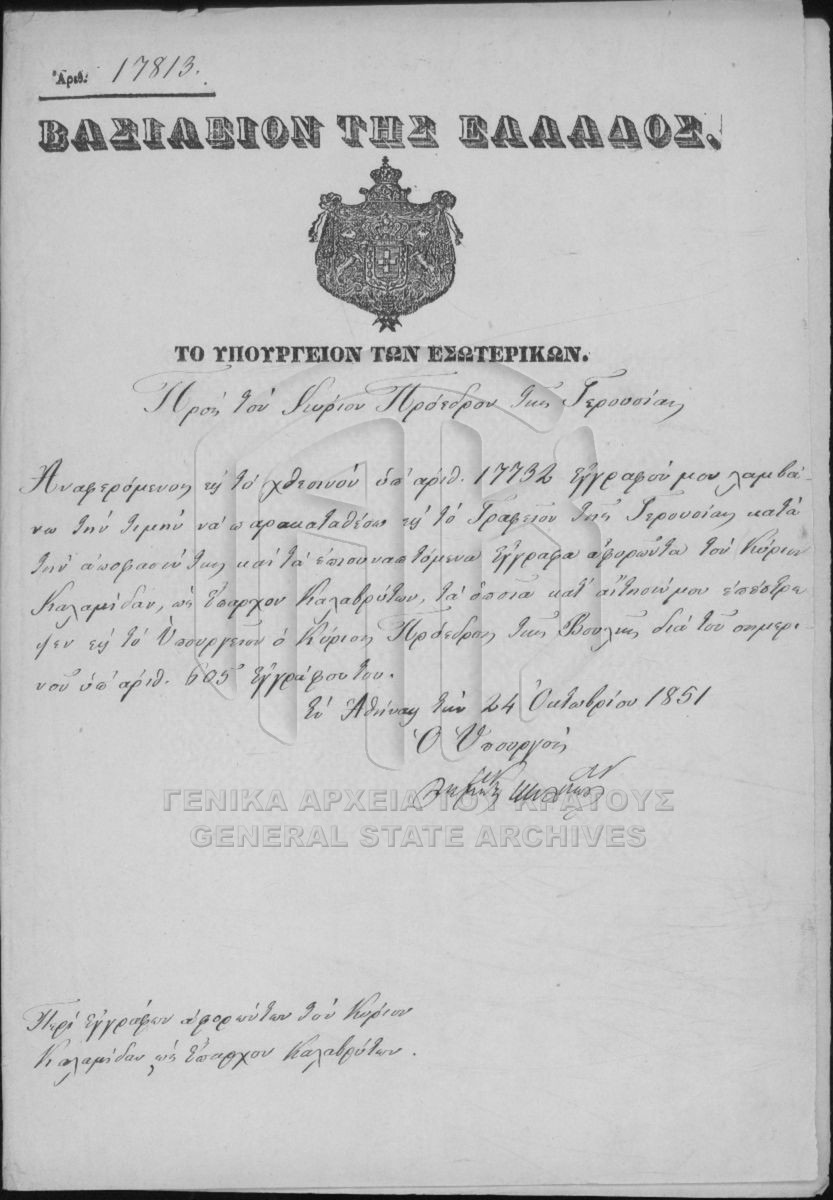 Ἀριθ. 17813.
ΒΑΣΙΛΕΙΟΝ ΤΗΣ ΕΛΛΑΔΟΣ.
ΤΟ ΥΠΟΥΡΓΕΙΟΝ ΤΩΝ ΕΣΩΤΕΡΙΚΩΝ.
Πρὸς τὸν Κύριον Πρόεδρον τῆς Γερουσίας
Ἀναφερόμενος εἰς τὸ χθεσινὸν ὑπ' ἀριθ. 17732 ἔγγραφόν μου λαμβά-
νω τὴν τιμὴν νὰ παρακαταθέσω εἰς τὸ Γραφεῖον τῆς Γερουσίας κατὰ
τὴν ἀπόφασίν της καὶ τὰ ἐπισυναπτόμενα ἔγγραφα ἀφορῶντα τὸν Κύριον
Καλαμίδαν, ὡς Ἔπαρχον Καλαβρύτων, τὰ ὁποῖα κατ' αἴτησίν μου ἐπέστρε-
ψεν εἰς τὸ Ὑπουργεῖον ὁ Κύριος Πρόεδρος τῆς Βουλῆς διὰ τοῦ σημερι-
νοῦ ὑπ' ἀριθ. 605 ἐγγράφου του.
Ἐν Ἀθήναις τὴν 24 Ὀκτωβρίου 1851
Ὁ Ὑπουργὸς
ΓΕΝΙΚΑ ΑΡΧΕΙΑ ΤΟΥ ΚΡΑΤΟΥΣ
GENERAL STATE ARCHIVES
Περὶ ἐγγράφων ἀφορώντων τὸν Κύριον
Καλαμίδαν ὡς Ἔπαρχον Καλαβρύτων.